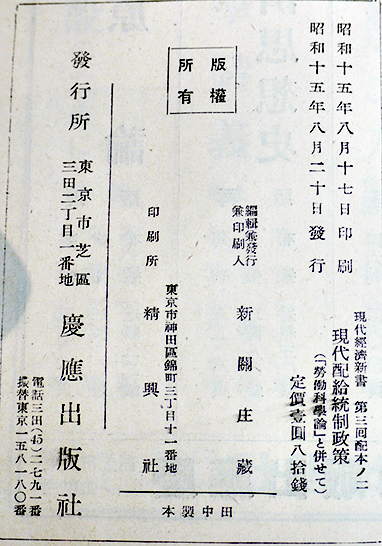 昭和十五年八月十七日印刷
昭和十五年八月二十日發行
現代經濟新書　第三回配本ノ二
現代配給統制政策
(「勞働科學論」と併せて)
定價壹圓八拾錢
版權
所有
編輯兼發行
兼印刷人
新關庄藏
東京市神田區錦町三丁目十一番地
印刷所　精興社
發行所
東京市芝區
三田二丁目一番地
慶應出版社
電話三田(45)二七九一番
振替東京一五八一八〇番
田中製本